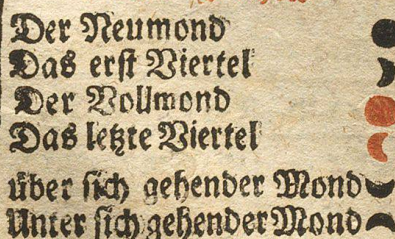 Der Neumond
Das erst Viertel
Der Vollmond
Das letzte Viertel
über sich gehender Mond
Unter sich gehender Mond